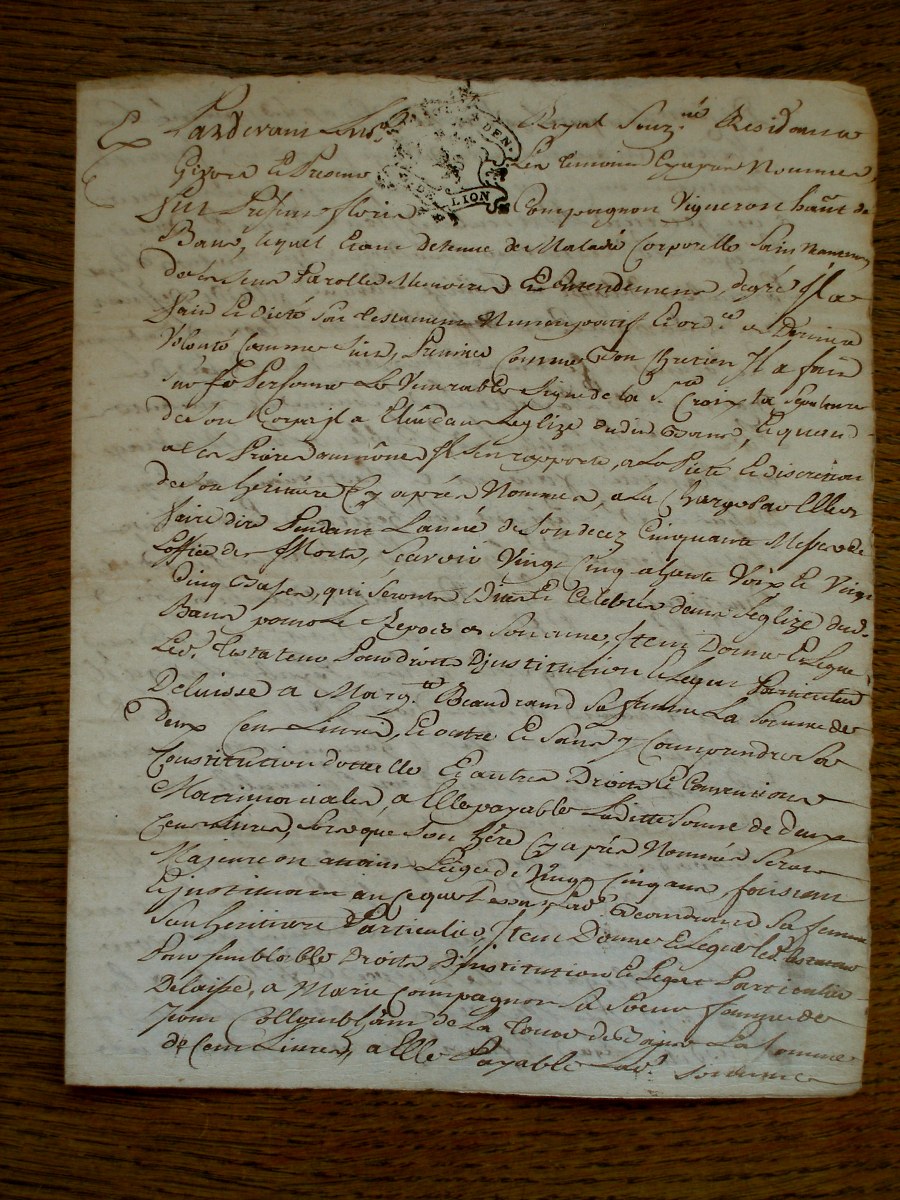 Pardevant Royal Souz.né Residant a
Givors et Presens Les temoins Cy apres Nommes
fut Presens Compagnon Vigneron hault de
Bans, lequel Etant detenu de Maladie Corporelle sans
de ses sens Parolle Memoire Et Entendement, degré Il a
fait et dicté son testament Nuncupatif Et ord.re et Derniere
Volonté Comme suit, Premier Comme bon Chretien Il a fait
sur sa Personne Le Venerable signe de la s.te Croix la sepulture
de son Corps Il a Elüe dans l'eglize dudit Bans, Et quand
a ses Prieres aumônes Il s'en rapporte, a La Pieté Et discretion
de son heritiere Cy après Nommée, a La Charge
faire dire Pendant L'année de son decez Cinquante Messes de
L'office des Morts, scavoir Vingt Cinq a haute Voix et Vingt
Cinq Basses, qui seronts Dites Et Celebrées dans l'eglize dud.
Bans pour Le Repos de son ame, Item Donne Et Legue
Led. Testateur Pour droits D'institution Et Legat Particulier
Delaisse a Marg.te Beaudrand sa femme La somme de
Deux Cent Livres, Et outre Et sans y Comprendre sa
Constitution dottalle Et autres Droits Et Conventions
Matrimonialles, a Elle payable Laditte somme de deux
Cent Livres, lorsque son Cy après Nommée sera
Majeure ou attaint L'âge de Vingt Cinq ans, faisant
Et instituant au Lad.e Beaudrand sa femme
son heritiere Particuliere, Item Donne Et Legue led. Testateur
Pour semblable Droits D'institution Et Legat Particulier
Delaisse, a Marie Compagnon sa Soeur femme de
La Tour de Bans La somme
de Cent Livres, a Elle Payable Lad.
LION